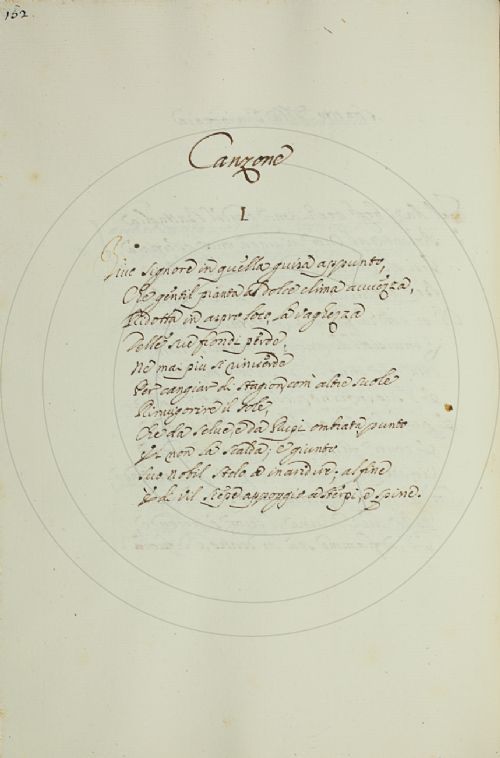 152
Canzone
I.
Vive Signore in quella guisa appunto,
Che gentil pianta a dolce clima avvezza,
Ridotta in aspro loco, la vaghezza
Delle sue frondi perde,
Ne mai piu si rinverde
Per cangiar di stagion, com' altre suole
Rinvigorire il sole,
Che da selve, e da Rupi ombrata punto
non la scalda; e giunto
Suo nobil stelo ad inaridire, al fine
di vil siepe appoggio a sterpi, e spine.